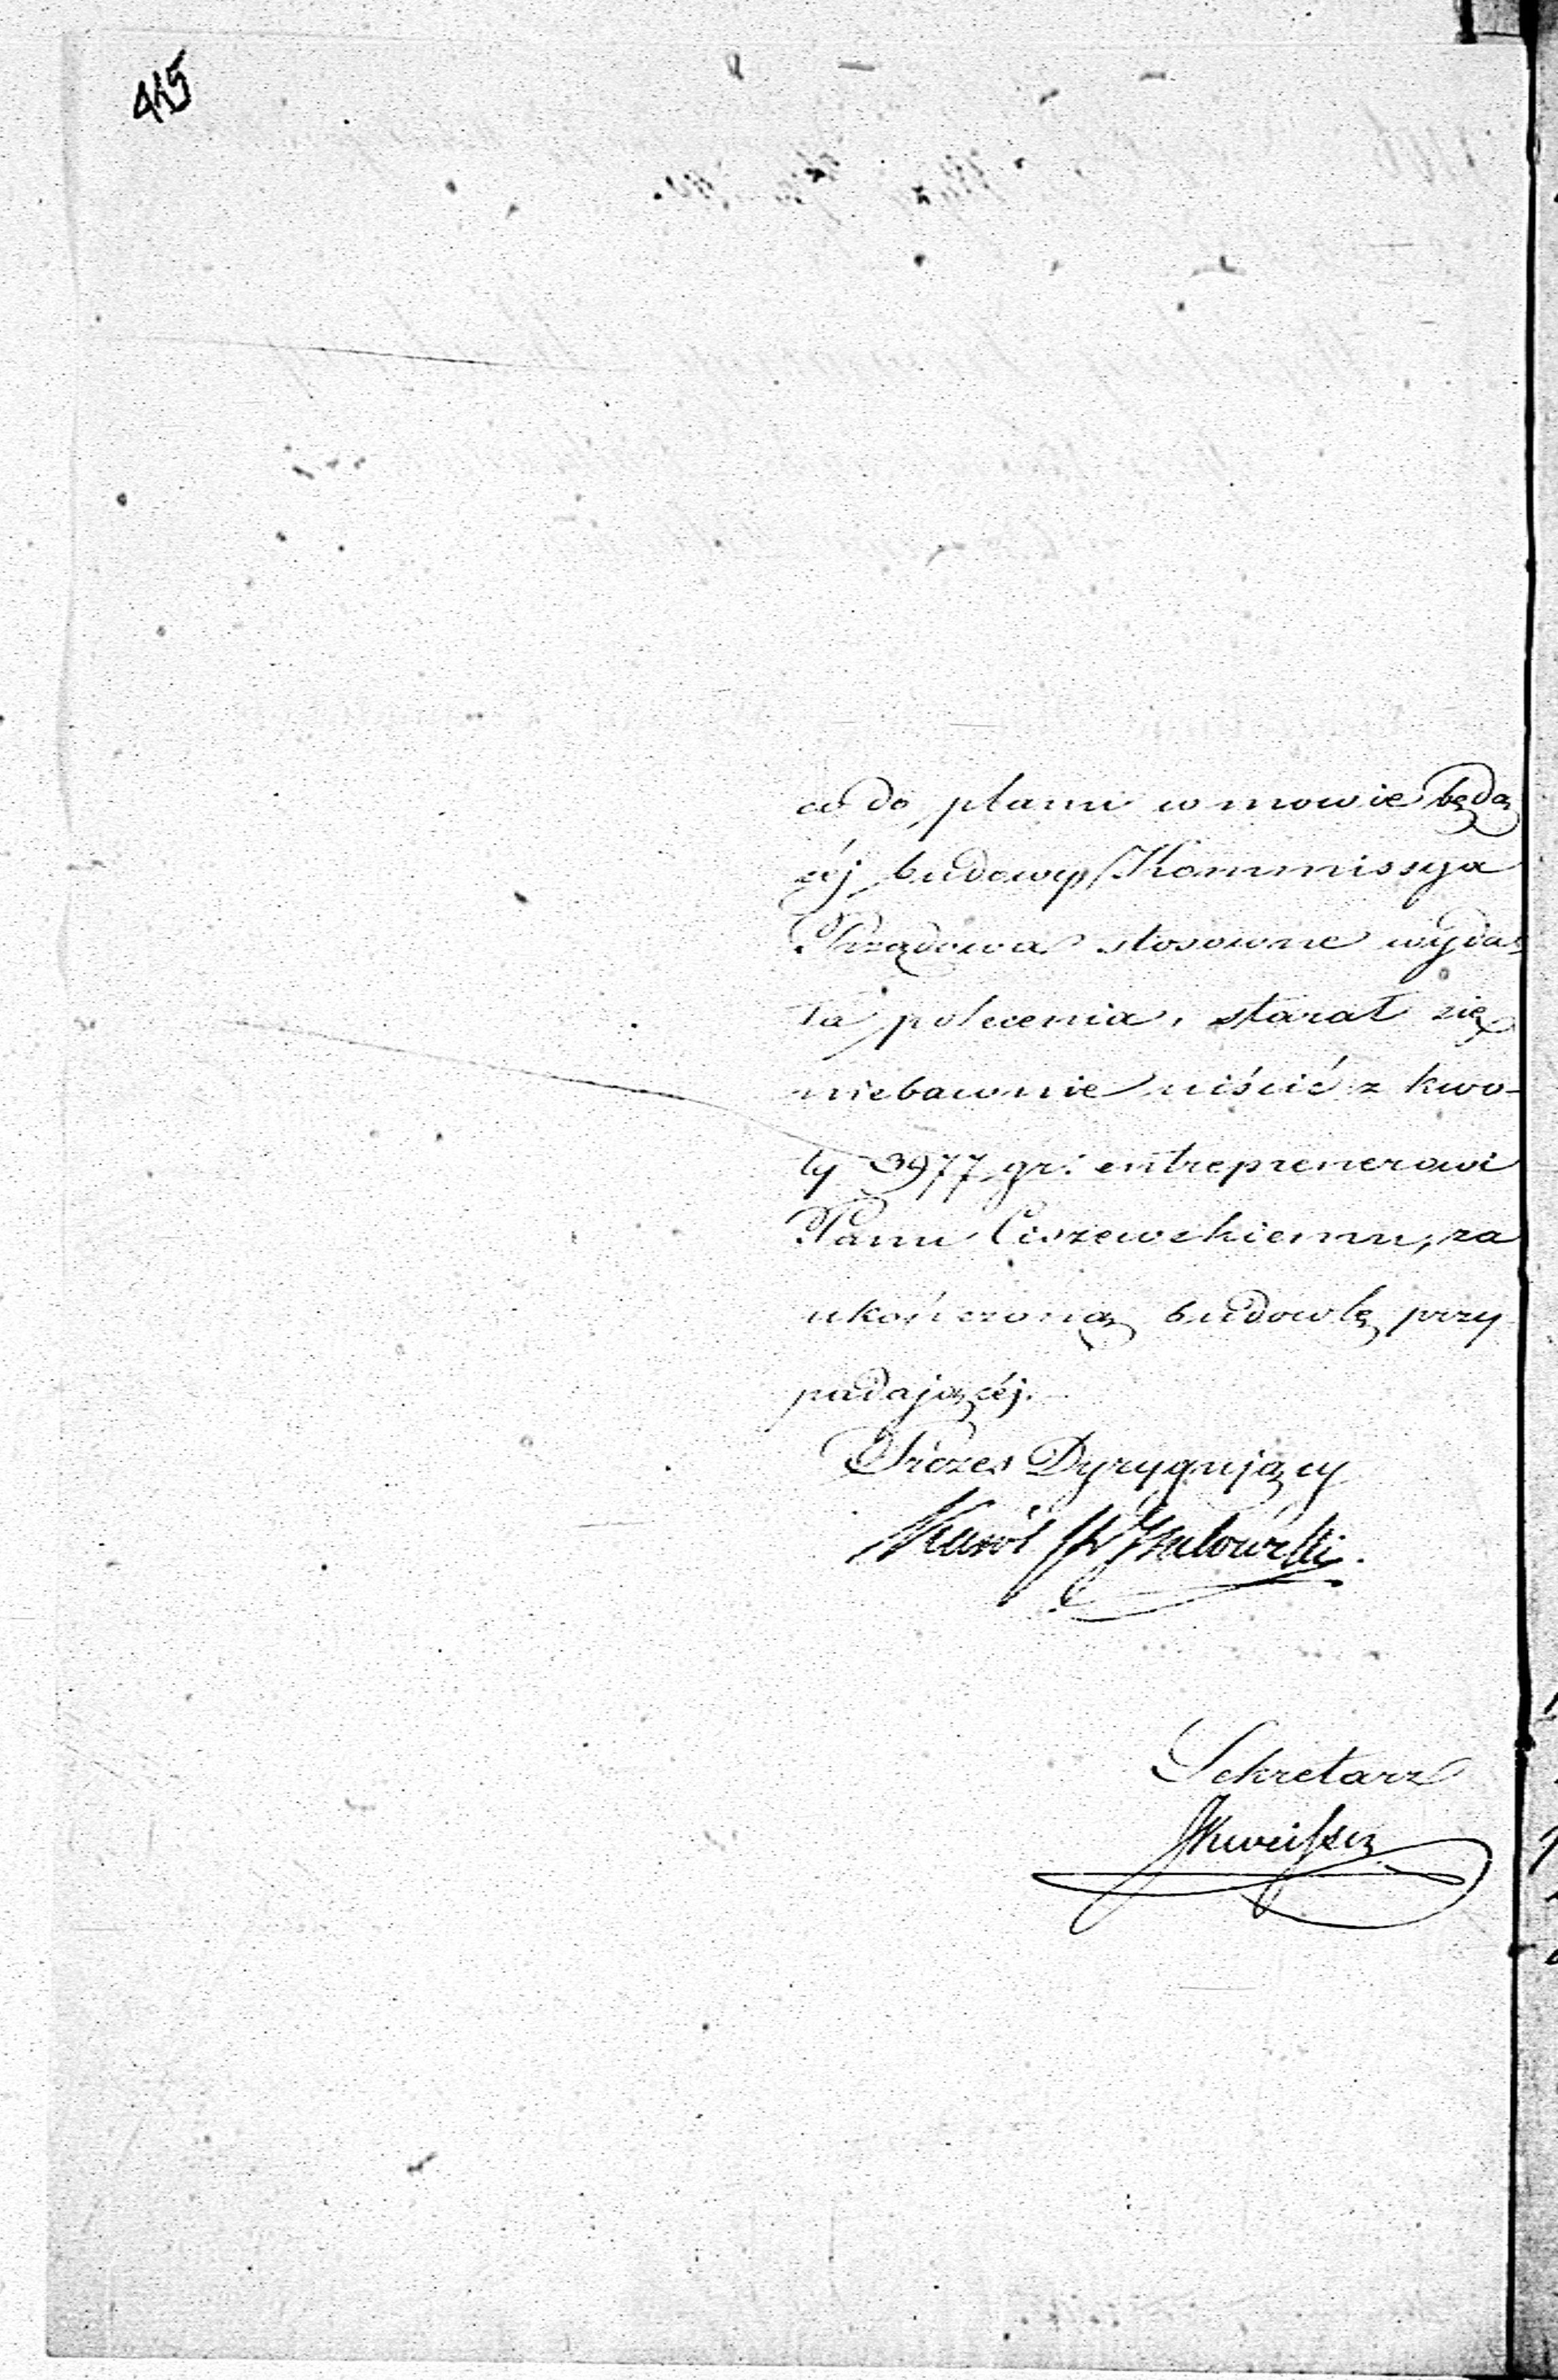 415
co do planu w mowie będą
céj budowy Kommissya
Rządowa stosowne wyda=
ła polecenia, starał się
niebawnie uiścić z kwo-
ty 3977 gr: entreprenerowi
Panu Ciszewskiemu, za
ukończoną budowlę przy
padającéj.
Prezes Dyrygujący
Karól
Sekretarz